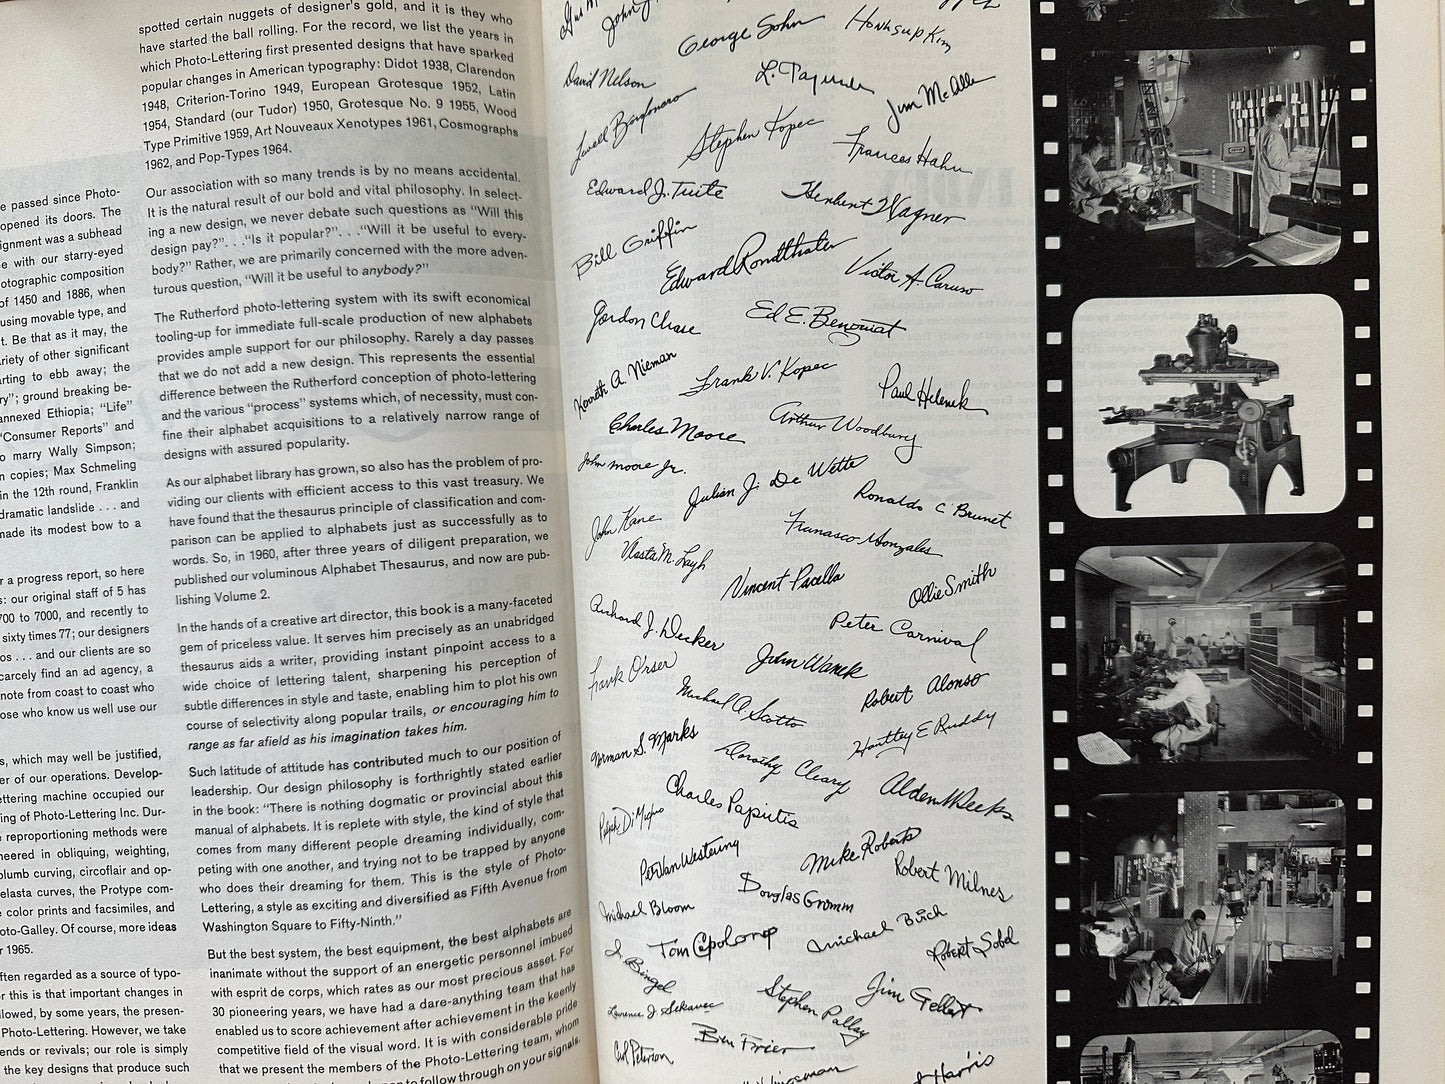 e passed since Photo-
opened its doors. The
ignment was a subhead
e with our starry-eyed
otographic composition
of 1450 and 1886, when
using movable type, and
t. Be that as it may, the
riety of other significant
arting to ebb away; the
ry"; ground breaking be-
annexed Ethiopia; "Life"
"Consumer Reports" and
o marry Wally Simpson;
n copies; Max Schmeling
in the 12th round, Franklin
dramatic landslide . . . and
made its modest bow to a
r a progress report, so here
s: our original staff of 5 has
700 to 7000, and recently to
sixty times 77; our designers
os . . . and our clients are so
carcely find an ad agency, a
note from coast to coast who
ose who know us well use our
s, which may well be justified,
er of our operations. Develop-
ettering machine occupied our
ing of Photo-Lettering Inc. Dur-
e reproportioning methods were
neered in obliquing, weighting,
plumb curving, circoflair and op-
elasta curves, the Protype com-
e color prints and facsimiles, and
oto-Galley. Of course, more ideas
r 1965.
ften regarded as a source of typo-
r this is that important changes in
llowed, by some years, the presen-
Photo-Lettering. However, we take
ends or revivals; our role is simply
the key designs that produce such
spotted certain nuggets of designer's gold, and it is they who
have started the ball rolling. For the record, we list the years in
which Photo-Lettering first presented designs that have sparked
popular changes in American typography: Didot 1938, Clarendon
1948, Criterion-Torino 1949, European Grotesque 1952, Latin
1954, Standard (our Tudor) 1950, Grotesque No. 9 1955, Wood
Type Primitive 1959, Art Nouveaux Xenotypes 1961, Cosmographs
1962, and Pop-Types 1964.
Our association with so many trends is by no means accidental.
It is the natural result of our bold and vital philosophy. In select-
ing a new design, we never debate such questions as "Will this
design pay?". . ."Is it popular?". . ."Will it be useful to every-
body?" Rather, we are primarily concerned with the more adven-
turous question, "Will it be useful to anybody?"
The Rutherford photo-lettering system with its swift economical
tooling-up for immediate full-scale production of new alphabets
provides ample support for our philosophy. Rarely a day passes
that we do not add a new design. This represents the essential
difference between the Rutherford conception of photo-lettering
and the various "process" systems which, of necessity, must con-
fine their alphabet acquisitions to a relatively narrow range of
designs with assured popularity.
As our alphabet library has grown, so also has the problem of pro-
viding our clients with efficient access to this vast treasury. We
have found that the thesaurus principle of classification and com-
parison can be applied to alphabets just as successfully as to
words. So, in 1960, after three years of diligent preparation, we
published our voluminous Alphabet Thesaurus, and now are pub-
lishing Volume 2.
In the hands of a creative art director, this book is a many-faceted
gem of priceless value. It serves him precisely as an unabridged
thesaurus aids a writer, providing instant pinpoint access to a
wide choice of lettering talent, sharpening his perception of
subtle differences in style and taste, enabling him to plot his own
course of selectivity along popular trails, or encouraging him to
range as far afield as his imagination takes him.
Such latitude of attitude has contributed much to our position of
leadership. Our design philosophy is forthrightly stated earlier
in the book: "There is nothing dogmatic or provincial about this
manual of alphabets. It is replete with style, the kind of style that
comes from many different people dreaming individually, com-
peting with one another, and trying not to be trapped by anyone
who does their dreaming for them. This is the style of Photo-
Lettering, a style as exciting and diversified as Fifth Avenue from
Washington Square to Fifty-Ninth."
But the best system, the best equipment, the best alphabets are
inanimate without the support of an energetic personnel imbued
with esprit de corps, which rates as our most precious asset. For
30 pioneering years, we have had a dare-anything team that has
enabled us to score achievement after achievement in the keenly
competitive field of the visual word. It is with considerable pride
that we present the members of the Photo-Lettering team, whom
to follow through on your signals.
George Sohn
Honksup Kim
David Nelson
Jim McAlle
Stephen Kopec
Frances Hahn
Edward J. Tuite
Herbert Wagner
Bill Griffin
Edward Rondthaler
Victor A. Caruso
Gordon Chase
Ed E. Benguiat
Kenneth A. Nieman
Frank V. Kopec
Paul Helenek
Charles Moore
Arthur Woodbury
John Moore Jr.
Julian J. De Witte
Ronaldo C Brunet
John Kane
Gonzales
Vlasta M.
Vincent Pacella
Ollie Smith
Richard J. Decker
Peter Carnival
Frank Orser
John Wanek
Michael A. Scotto
Robert Alonso
Norman S. Marks
Dorothy Cleary
Hartley E Ruddy
Charles Papirtis
Alden Weeks
Ralph
Peter Van Westering
Mike Roberts
Robert Milnes
Michael Bloom
Douglas Gromm
Tom
Michael Birch
Robert Sobel
J. Bingel
Lawrence J. Sekavec
Stephen Palley
Jim Gellert
Carl Peterson
Ben Frier
Harris